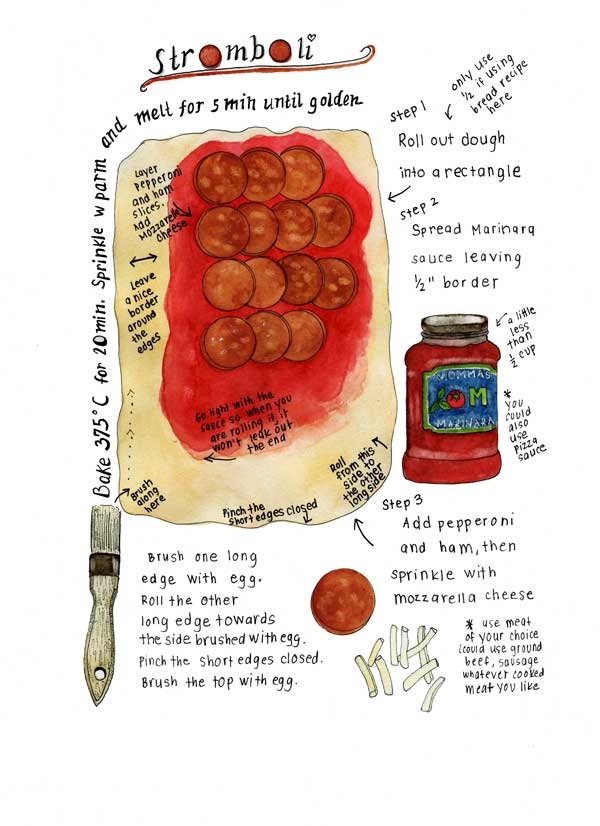 Stromboli
Bake 375°C for 20 min. Sprinkle w parm and melt for 5 min until golden
only use
1/2 if using
bread recipe
here
Step 1
Roll out dough
into a rectangle
Step 2
Spread Marinara
sauce leaving
1/2" border
Layer
pepperoni
and ham
slices.
Add
Mozzarella
Cheese
Leave
a nice
border
around
the
edges
Go light with the
sauce so when you
are rolling it, it
won't leak out
the end
Brush
along
here
Pinch the
short edges closed
Roll
from this
side to
the other
long side
a little
less
than
1/2 cup
MOMMAS
M
MARINARA
*
you
could
also
use
pizza
sauce
Step 3
Add pepperoni
and ham, then
sprinkle with
mozzarella cheese
Brush one long
edge with egg.
Roll the other
long edge towards
the side brushed with egg.
Pinch the short edges closed.
Brush the top with egg.
* use meat
of your choice
(could use ground
beef, sausage
whatever cooked
meat you like